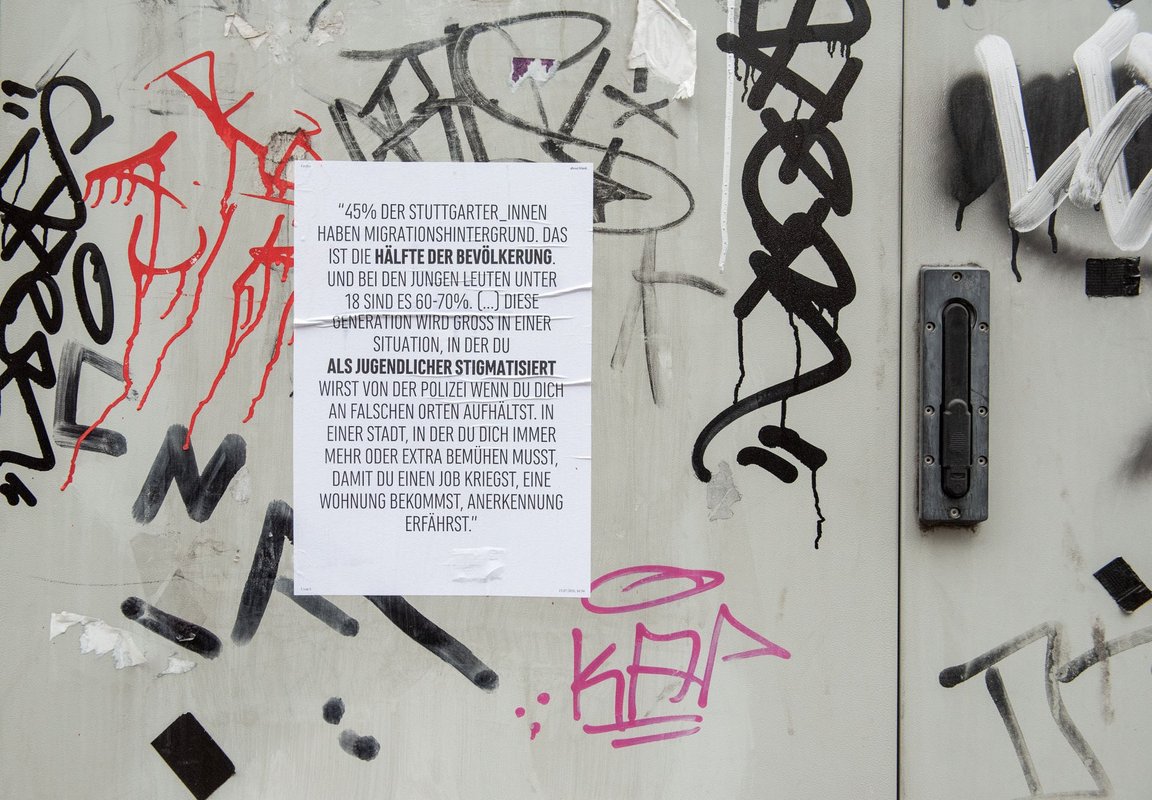 “45% DER STUTTGARTER_INNEN
HABEN MIGRATIONSHINTERGRUND. DAS
IST DIE HÄLFTE DER BEVÖLKERUNG.
UND BEI DEN JUNGEN LEUTEN UNTER
18 SIND ES 60-70%. (...) DIESE
GENERATION WIRD GROSS IN EINER
SITUATION, IN DER DU
ALS JUGENDLICHER STIGMATISIERT
WIRST VON DER POLIZEI WENN DU DICH
AN FALSCHEN ORTEN AUFHÄLTST. IN
EINER STADT, IN DER DU DICH IMMER
MEHR ODER EXTRA BEMÜHEN MUSST,
DAMIT DU EINEN JOB KRIEGST, EINE
WOHNUNG BEKOMMST, ANERKENNUNG
ERFÄHRST.”